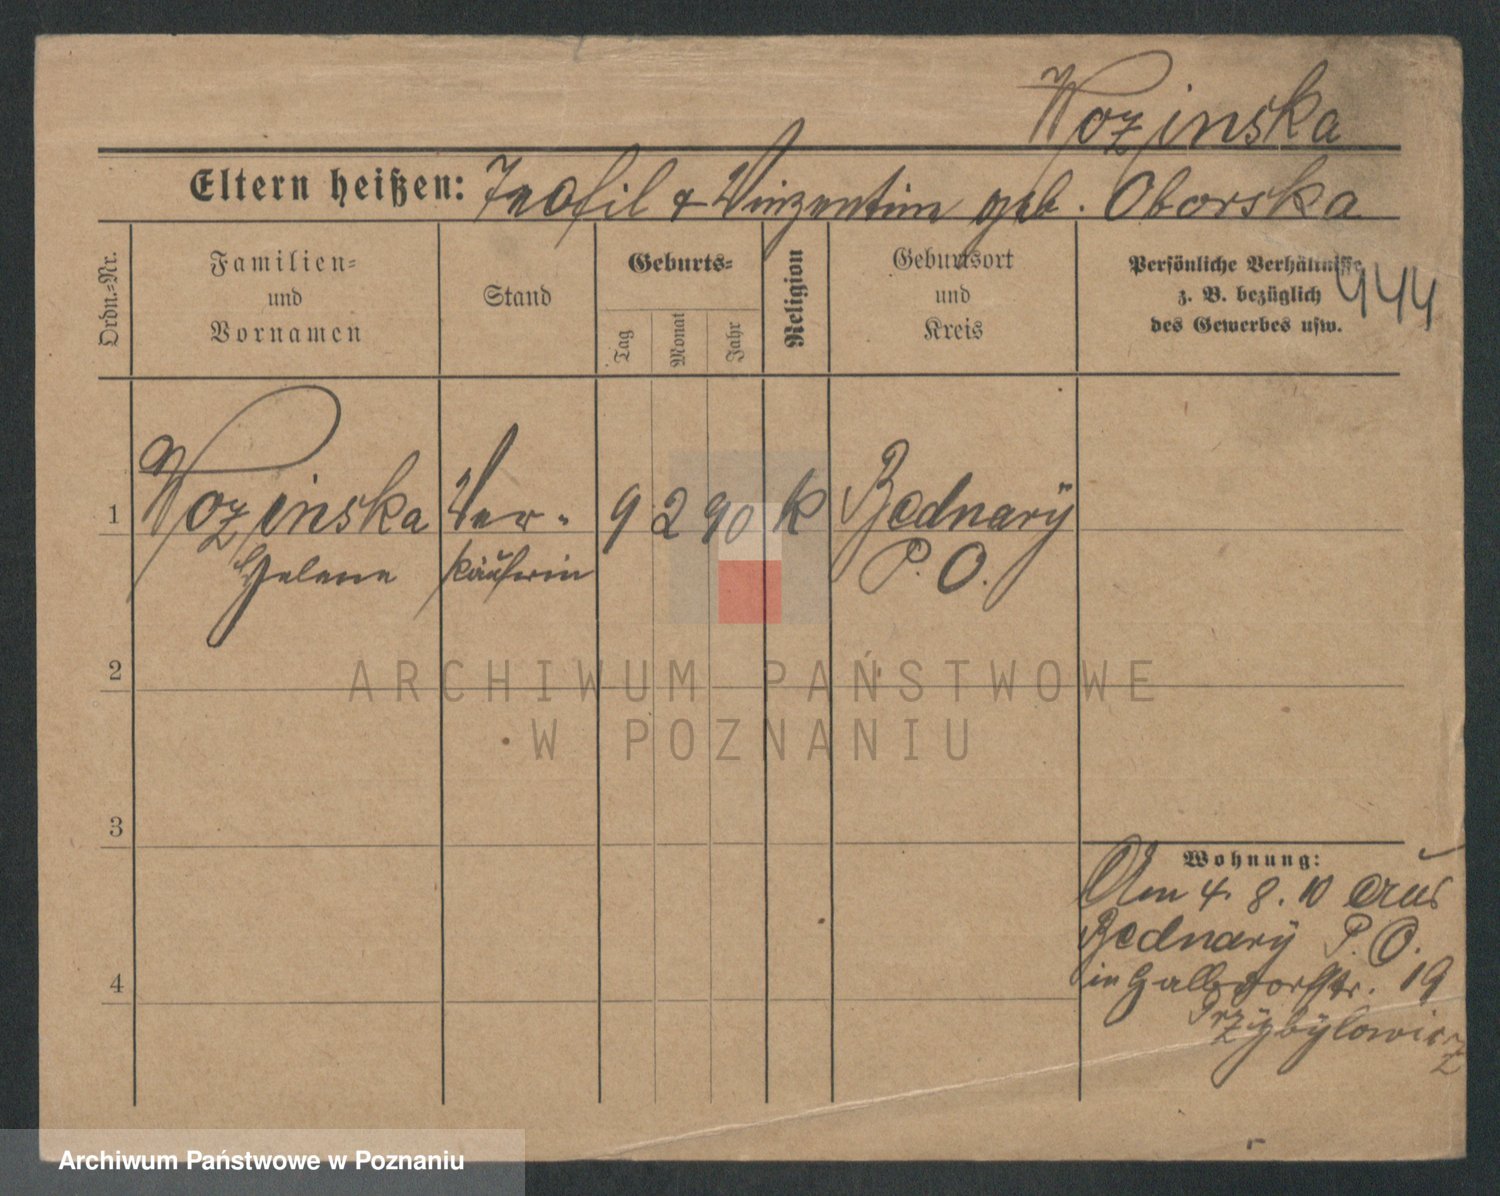 Wozinska
Eltern heißen: Teofil & Vinzentine geb. Oborska
Ordn.-Nr.
Familien-
und
Vornamen
Stand
Geburts-
Tag
Monat
Jahr
Religion
Geburtsort
und
Kreis
Persönliche Verhältnisse
z. B. bezüglich
des Gewerbes usw.
944
1 Wozinska Ver- 9 2 90 k Bednary
Helene käuferin P. O.
2
ARCHIWUM PAŃSTWOWE
W POZNANIU
3
Wohnung:
Am 4. 8. 10 aus
Bednary P. O.
in Halbdorfstr. 19
Przÿbÿlowicz
4
Archiwum Państwowe w Poznaniu